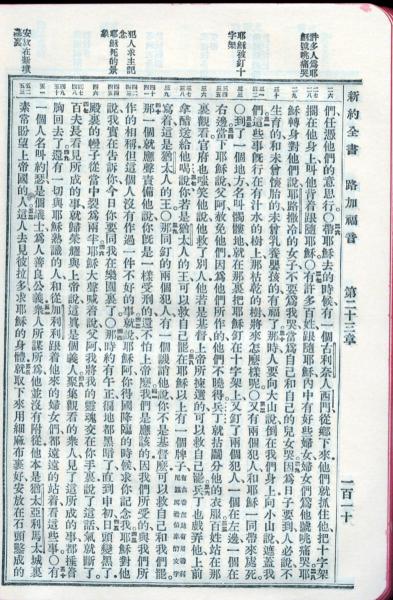 新約全書 路加福音 第二十三章 一百一十
許多人爲耶
穌號咷痛哭
耶穌被釘十
字架
犯人求主記
念
耶穌死的景
象
們任憑他們的意思行〇帶耶穌去的時候有一個古利奈人西門從鄉下來他們就抓住他把十字架
擱在他身上叫他背着跟隨耶穌〇有許多百姓跟隨耶穌內中有好些婦女婦女們爲他號咷痛哭耶
穌轉身對他們說耶路撒冷的女子不要爲我哭當爲自己和自己的兒女哭因爲日子要到人必說不
生育的和未曾懷胎的未曾乳養嬰孩的有福了那時人要向大山說倒在我們身上向小山說遮蓋我
們這些事旣行在有汁水的樹上那枯乾的樹將來怎麼樣呢〇又有兩個犯人和耶穌一同帶來處死
〇到了一個地方名叫髑髏地就在那裏把耶穌釘在十字架上又釘了兩個犯人一個在左邊一個在
右邊當下耶穌說父阿赦免他們因爲他們所作的他們不曉得兵丁就拈鬮分他的衣服百姓站在那
裏觀看官府也嗤笑他說他救了別人他若是基督上帝所揀選的可以救自己罷兵丁也戲弄他上前
拿醋送給他喝說你若是猶太人的王可以救自己罷在耶穌以上有一個牌子
寫着這是猶太人的王〇那同釘的兩個犯人有一個譏誚他說你不是基督麼可以救自己和我們罷
那一個就應聲責備他說你旣是一樣受刑的還不怕上帝麼我們是應該的因我們所受的與我們所
作的相稱但這個人沒有作過一件不好的事就說耶穌阿你得國降臨的時候求你記念我耶穌對他
說我實在告訴你今日你要同我在樂園裏了〇那時約有午正徧地都黑暗了直到申初日頭變黑了
殿裏的幔子從當中裂爲兩半耶穌大聲喊着說父阿我將我的靈魂交在你手裏說了這話氣就斷了
百夫長看見所成的事就歸榮耀與上帝說這眞是個義人聚集觀看的衆人見了這所成的事都捶着
胸回去了還有一切與耶穌熟識的人和從加利利跟着他來的婦女們都遠遠的站着看這些事〇有
一個人名叫約瑟是個議士爲人善良公義衆人所謀所爲他並沒有附從他本是猶太亞利馬太城裏
素常盼望上帝國的人這人去見彼拉多求耶穌的身體就取下來用細麻布裹好安放在石頭鑿成的